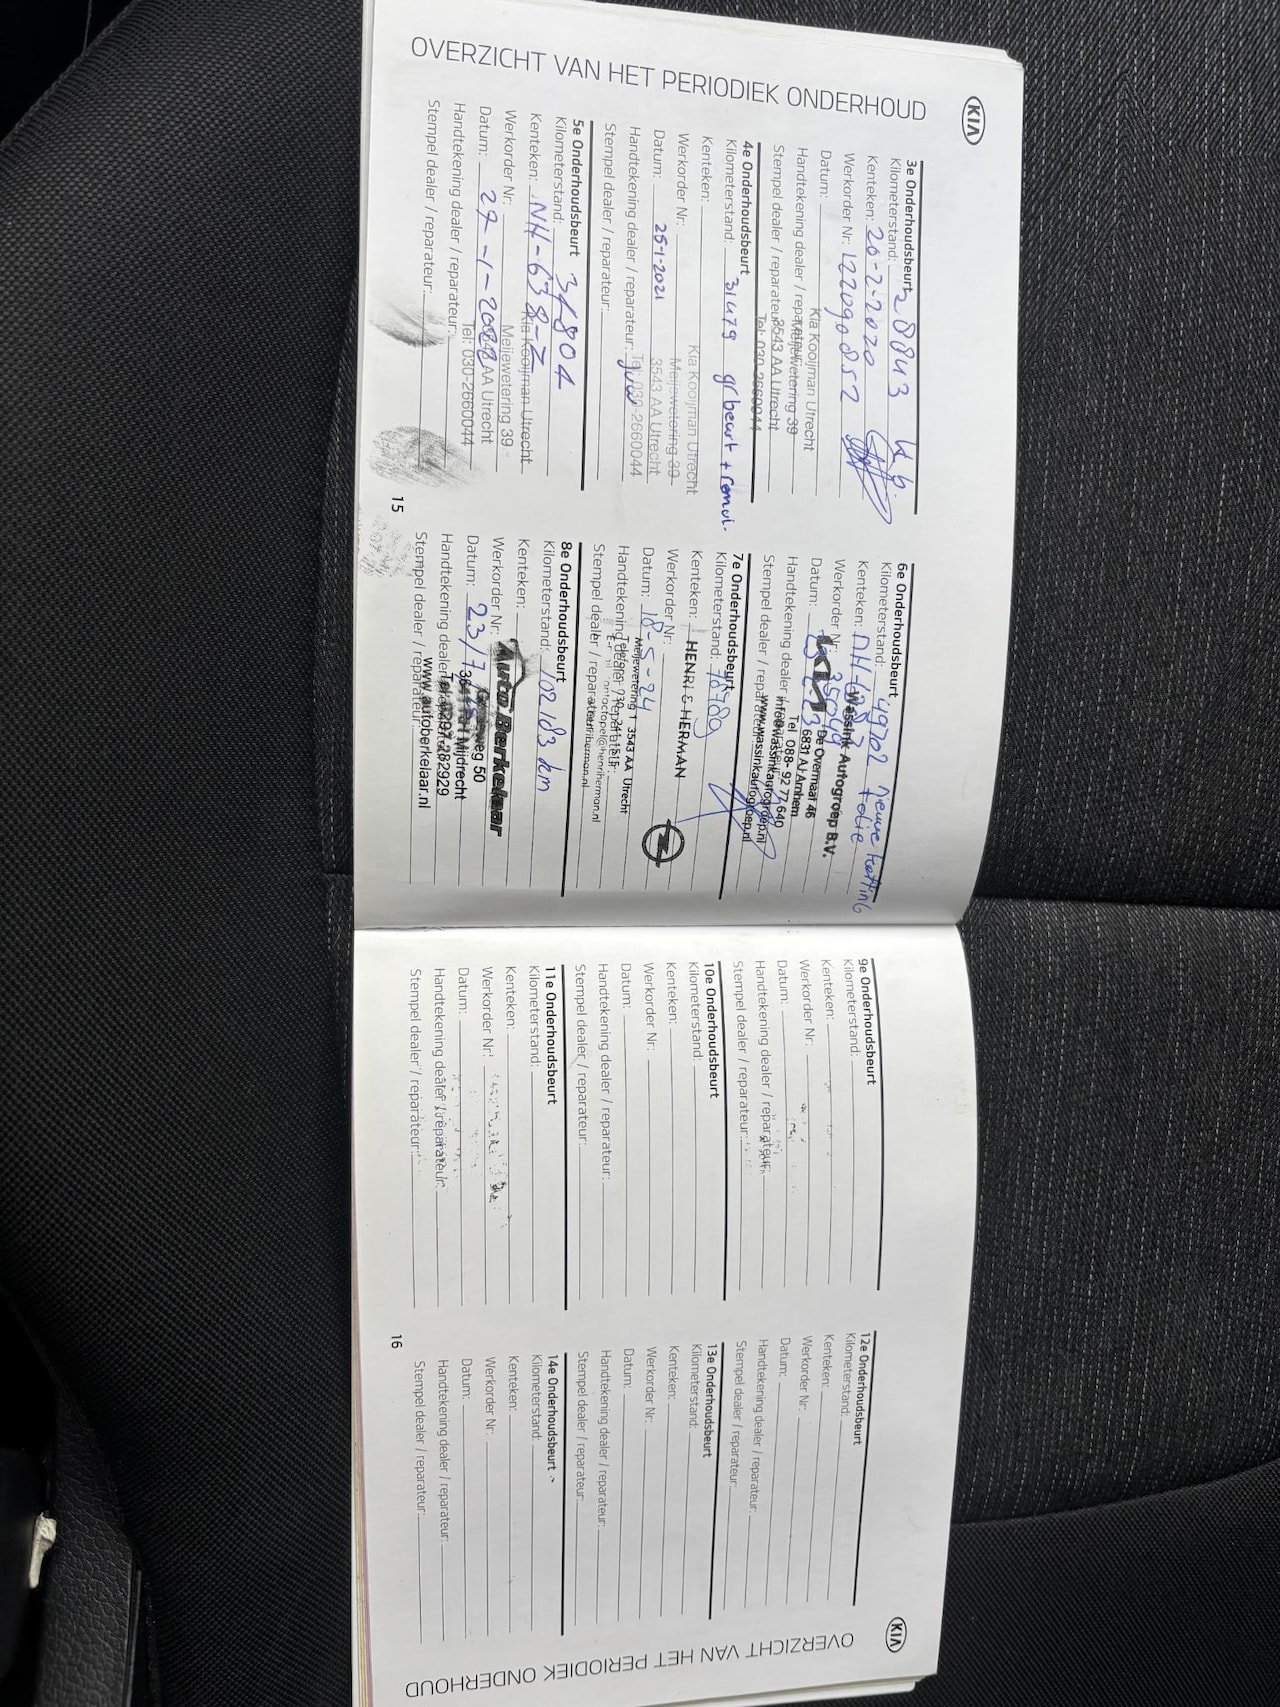 OVERZICHT VAN HET PERIODIEK ONDERHOUD
KIA
3e Onderhoudsbeurt
Kilometerstand: 28843 kb.
Kenteken: 20-2-2020
Werkorder Nr: 122090852
Datum:
Kia Kooijman Utrecht
Handtekening dealer / reparateur:
Meijewetering 39
Stempel dealer / reparateur:
3543 AA Utrecht
Tel: 030-2660044
4e Onderhoudsbeurt
Kilometerstand: 31479 gr beurt +
Kenteken:
Kia Kooijman Utrecht
Werkorder Nr:
Meijewetering 39
Datum: 25-1-2021
3543 AA Utrecht
Handtekening dealer / reparateur:
Tel: 030-2660044
Stempel dealer / reparateur:
5e Onderhoudsbeurt
Kilometerstand: 34804
Kenteken: NH-638-Z
Kia Kooijman Utrecht
Werkorder Nr:
Meijewetering 39
Datum: 27-1-2022
3543 AA Utrecht
Handtekening dealer / reparateur:
Tel: 030-2660044
Stempel dealer / reparateur:
15
6e Onderhoudsbeurt
Kilometerstand: 49702 nieuwe ketting
Kenteken: + olie
Werkorder Nr: 35049
Wassink Autogroep B.V.
Datum:
KIA
De Overmaat 46
6831 AJ Arnhem
Handtekening dealer / reparateur:
Tel 088- 92 77 640
info@wassinkautogroep.nl
Stempel dealer / reparateur:
www.wassinkautogroep.nl
7e Onderhoudsbeurt
Kilometerstand: 78789
Kenteken:
HENRI & HERMAN
Werkorder Nr:
Datum: 18-5-24
Meijewetering 1 3543 AA Utrecht
Handtekening dealer / reparateur:
Telefoon 030-241 1515
Stempel dealer / reparateur:
8e Onderhoudsbeurt
Kilometerstand: 102183 km
Kenteken:
Werkorder Nr:
Auto Berkelaar
Datum: 23/7/
weg 50
Handtekening dealer / reparateur:
Mijdrecht
Tel. 0297-282929
Stempel dealer / reparateur:
www.autoberkelaar.nl
9e Onderhoudsbeurt
Kilometerstand:
Kenteken:
Werkorder Nr:
Datum:
Handtekening dealer / reparateur:
Stempel dealer / reparateur:
10e Onderhoudsbeurt
Kilometerstand:
Kenteken:
Werkorder Nr:
Datum:
Handtekening dealer / reparateur:
Stempel dealer / reparateur:
11e Onderhoudsbeurt
Kilometerstand:
Kenteken:
Werkorder Nr:
Datum:
Handtekening dealer / reparateur:
Stempel dealer / reparateur:
16
12e Onderhoudsbeurt
Kilometerstand:
Kenteken:
Werkorder Nr:
Datum:
Handtekening dealer / reparateur:
Stempel dealer / reparateur:
13e Onderhoudsbeurt
Kilometerstand:
Kenteken:
Werkorder Nr:
Datum:
Handtekening dealer / reparateur:
Stempel dealer / reparateur:
14e Onderhoudsbeurt
Kilometerstand:
Kenteken:
Werkorder Nr:
Datum:
Handtekening dealer / reparateur:
Stempel dealer / reparateur:
KIA
OVERZICHT VAN HET PERIODIEK ONDERHOUD